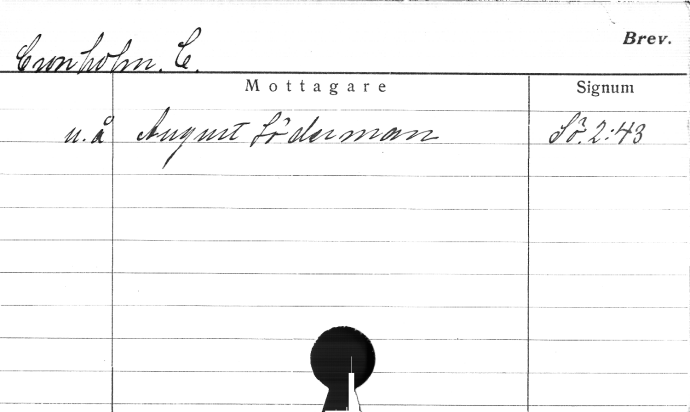 Brev.
Cronholm. C.
Mottagare Signum
u.å August Söderman Sö. 2:43